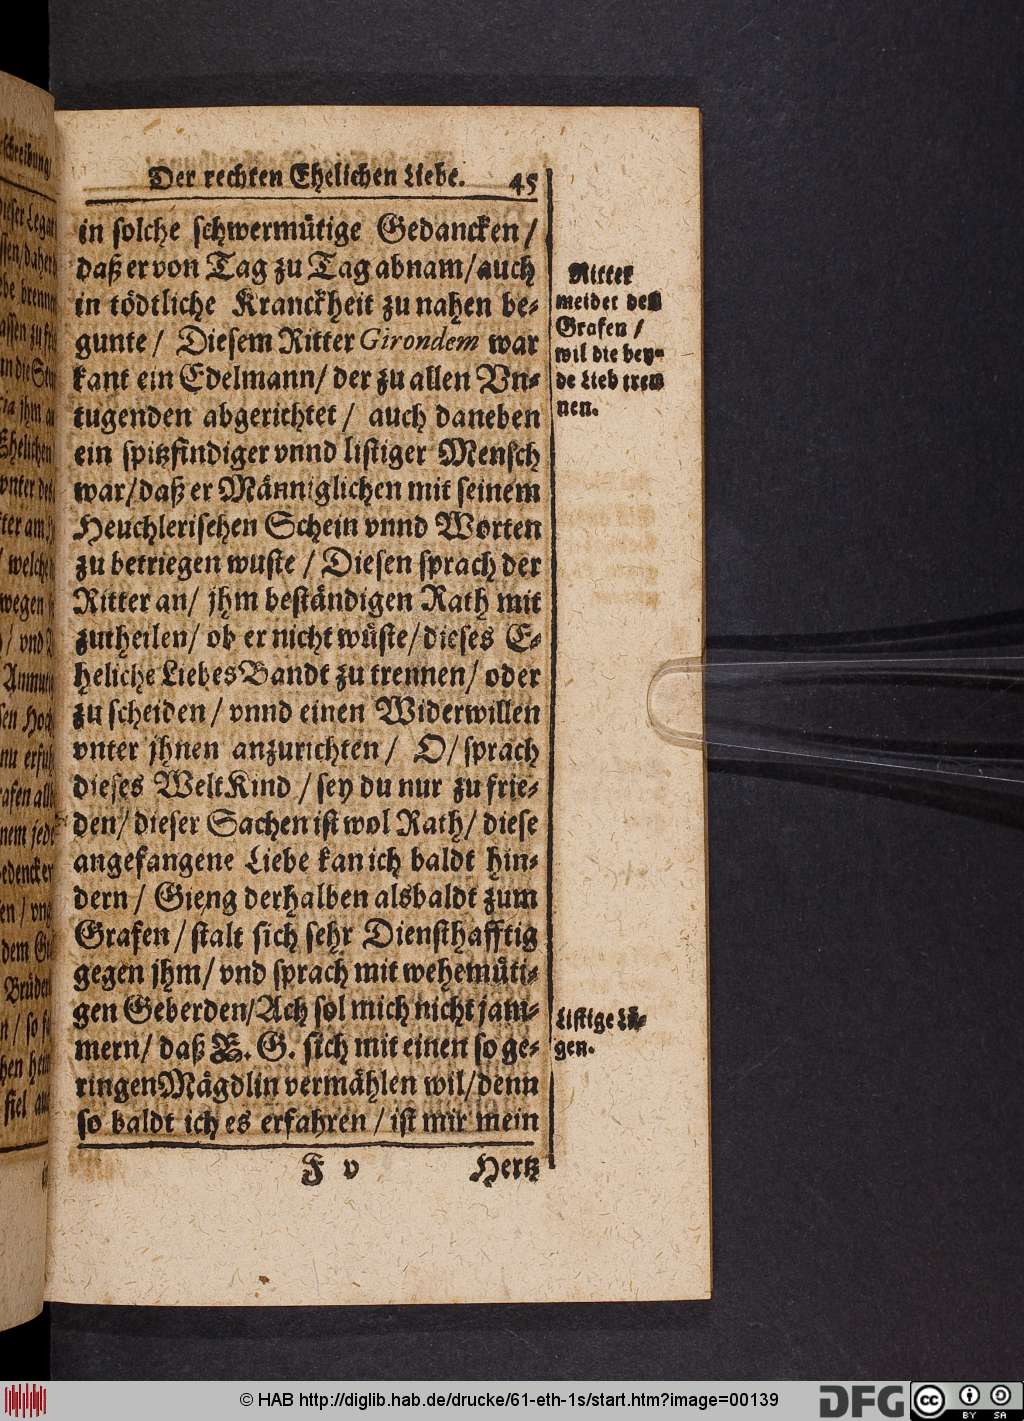 Der rechten Ehelichen Liebe. 45
in solche schwermütige Gedancken /
daß er von Tag zu Tag abnam / auch
in tödtliche Kranckheit zu nahen be-
gunte / Diesem Ritter Girondem war
kant ein Edelmann / der zu allen Vn-
tugenden abgerichtet / auch daneben
ein spitzfindiger vnnd listiger Mensch
war / daß er Männiglichen mit seinem
Heuchlerischen Schein vnnd Worten
zu betriegen wuste / Diesen sprach der
Ritter an / jhm beständigen Rath mit
zutheilen / ob er nicht wüste / dieses E-
heliche Liebes Bandt zu trennen / oder
zu scheiden / vnnd einen Widerwillen
vnter jhnen anzurichten / O / sprach
dieses Welt Kind / sey du nur zu frie-
den / dieser Sachen ist wol Rath / diese
angefangene Liebe kan ich baldt hin-
dern / Gieng derhalben alsbaldt zum
Grafen / stalt sich sehr Diensthafftig
gegen jhm / vnd sprach mit wehemüti-
gen Geberden / Ach sol mich nicht jam-
mern / daß E. G. sich mit einen so ge-
ringen Mägdlin vermählen wil / denn
so baldt ich es erfahren / ist mir mein
F v Hertz
Ritter
meidet den
Grafen /
wil die bey-
de Lieb tren
nen.
Listige Lü-
gen.
© HAB http://diglib.hab.de/drucke/61-eth-1s/start.htm?image=00139
DFG
cc
BY SA